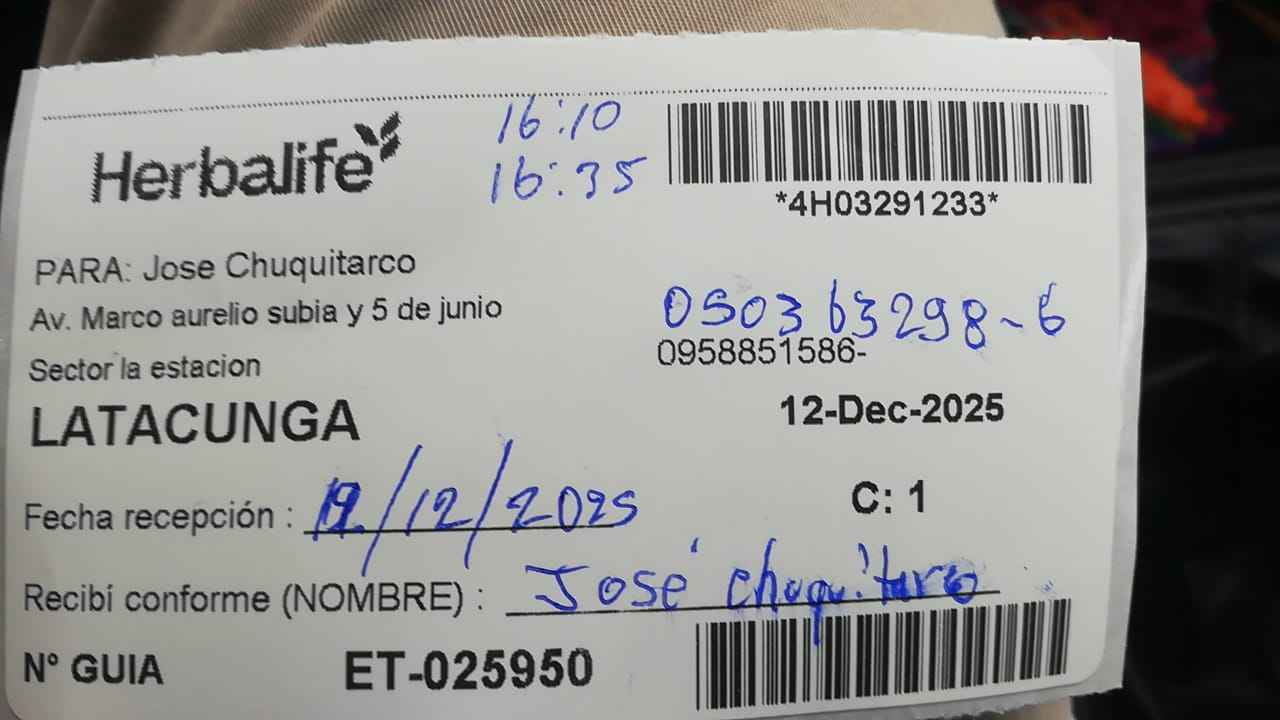 Herbalife
16:10
16:35
*4H03291233*
PARA: Jose Chuquitarco
Av. Marco aurelio subia y 5 de junio
050363298-6
Sector la estacion
0958851586-
LATACUNGA
12-Dec-2025
Fecha recepción : /12/2025
C: 1
Recibí conforme (NOMBRE) : José chuquitarco
N° GUIA ET-025950